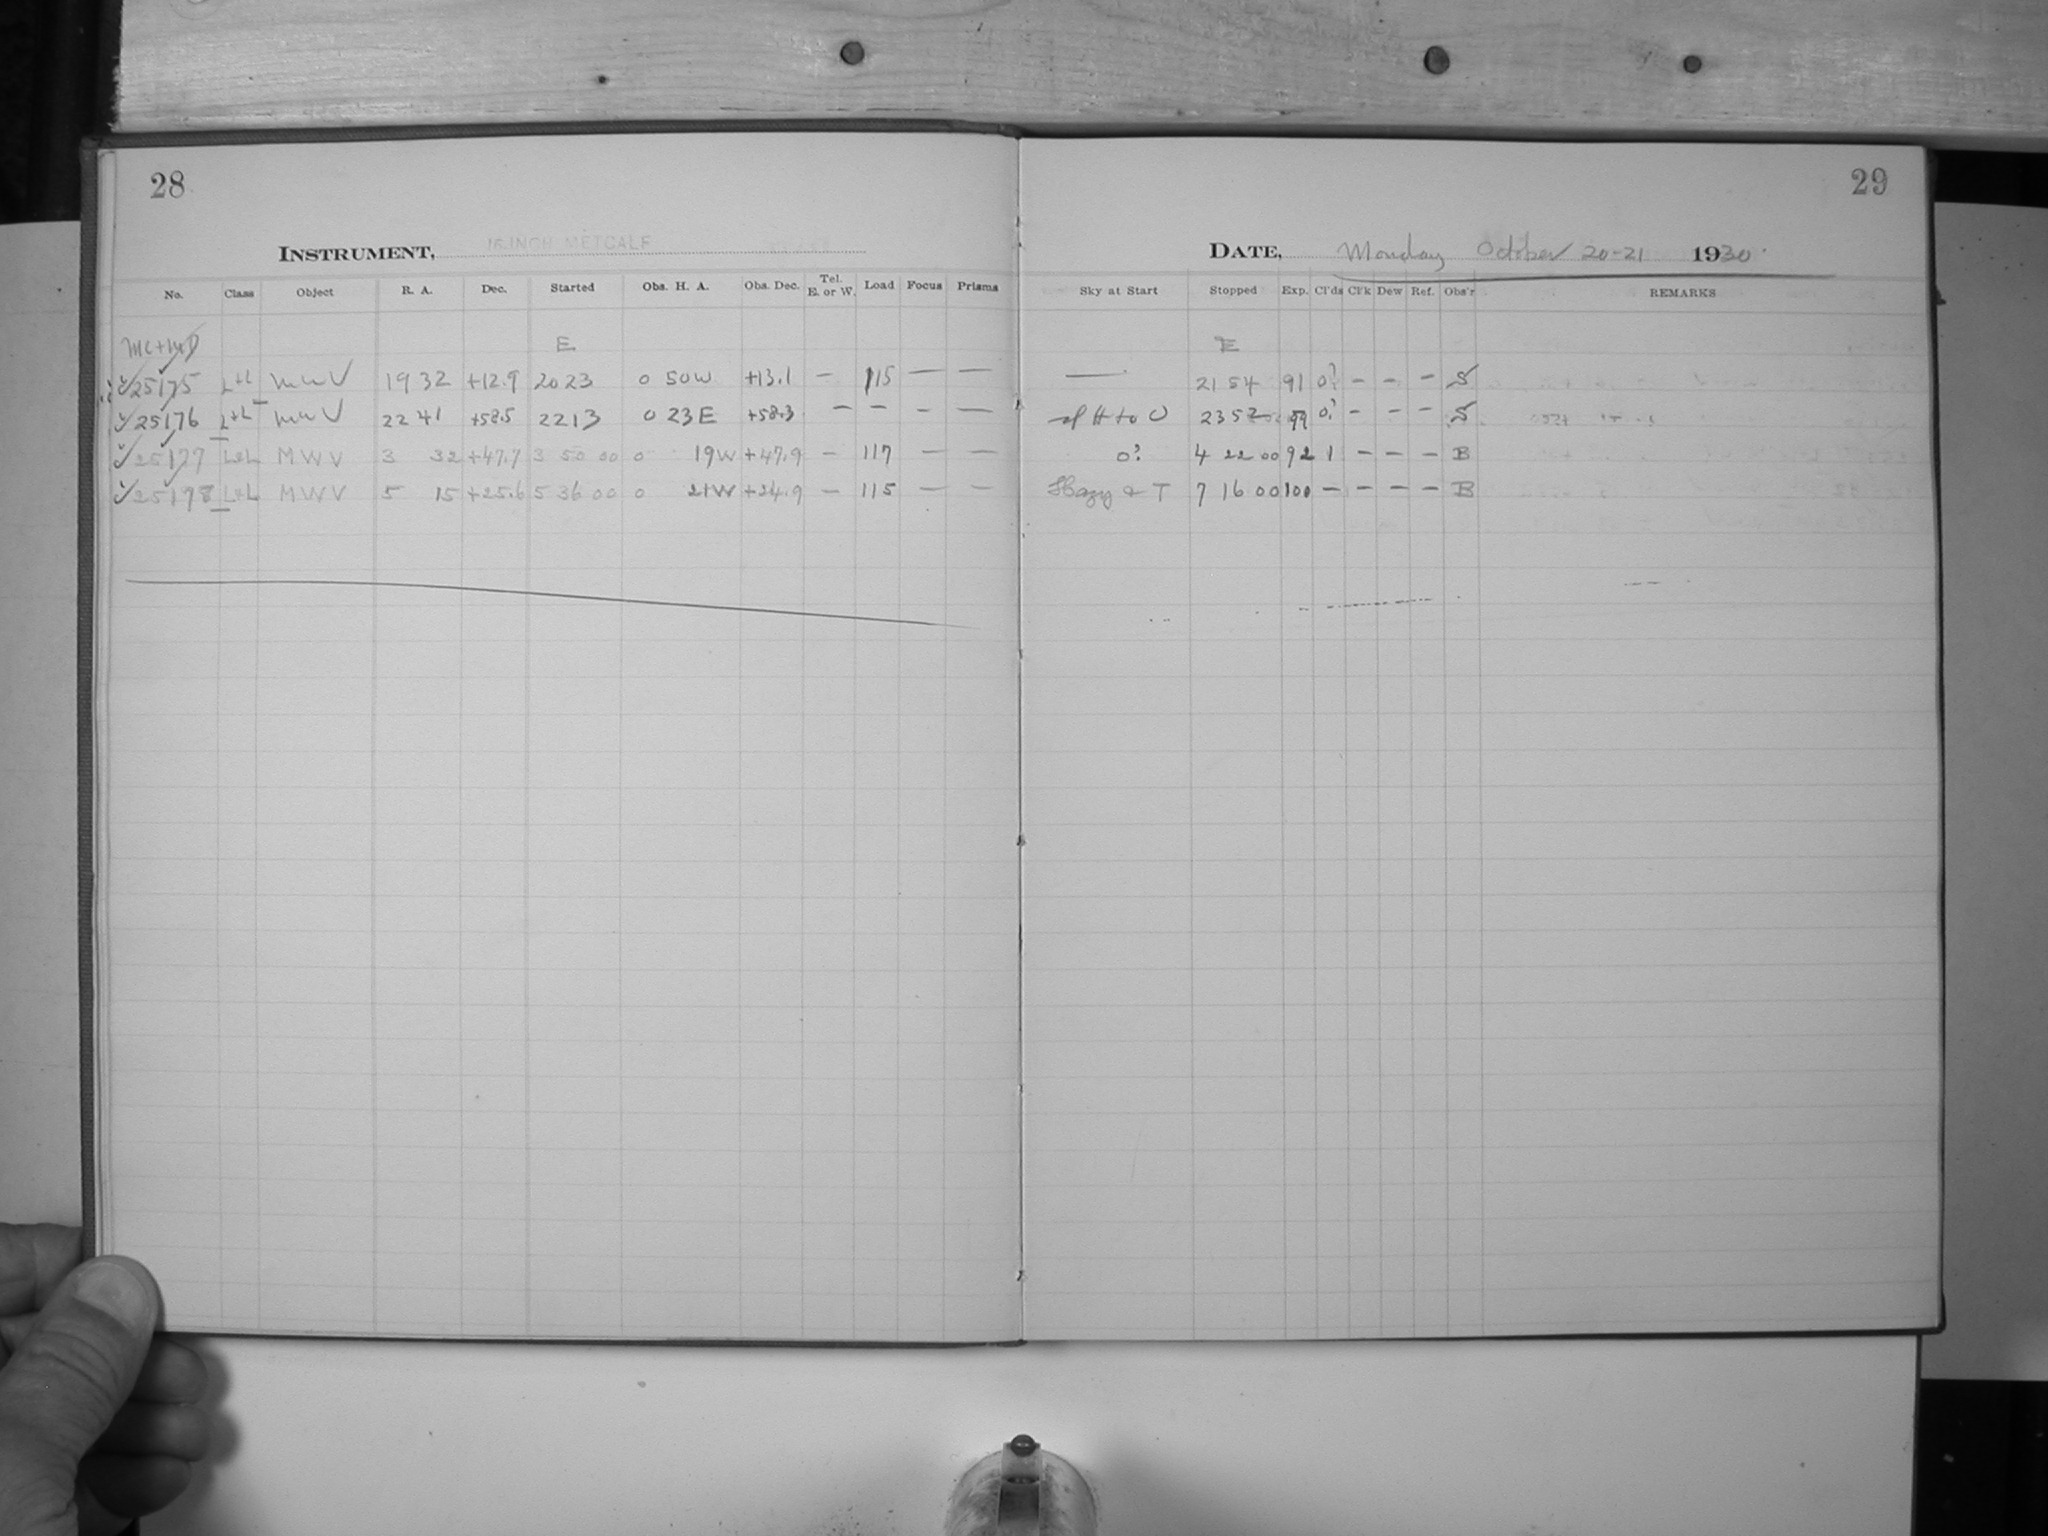 28
INSTRUMENT, 16 INCH METCALF
No. Class Object R. A. Dec. Started Obs. H. A. Obs. Dec. Tel. E. or W. Load Focus Prisms
E
25175 L+L MWV 19 32 +12.9 20 23 0 50W +13.1 — 115 — —
25176 L+L MWV 22 41 +58.5 22 13 0 23E +58.3 — — — —
25177 L&L M.W.V 3 32 +47.7 3 50 00 0 19W +47.9 — 117 — —
25178 L&L M.W.V 5 15 +25.6 5 36 00 0 21W +24.9 — 115 — —
29
DATE, Monday October 20-21 1930
Sky at Start Stopped Exp. Cl'ds Cl'k Dew Ref. Obs'r REMARKS
E
— 21 54 91 0? — — — S
H to 0 23 52 99 0? — — — S
0? 4 22 00 92 1 — — — B
Hazy & T 7 16 00 100 — — — — B